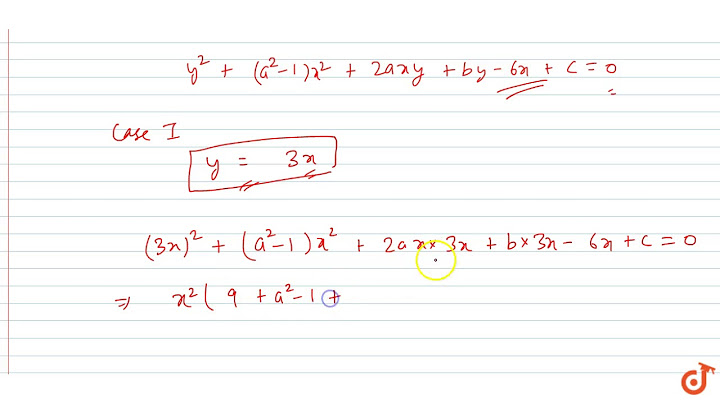 y² + (a²-1)x² + 2axy + by - 6x + c = 0
Case I
y = 3x
(3x)² + (a²-1)x² + 2ax×3x + b×3x - 6x + c = 0
⇒ x²( 9 + a²-1 +